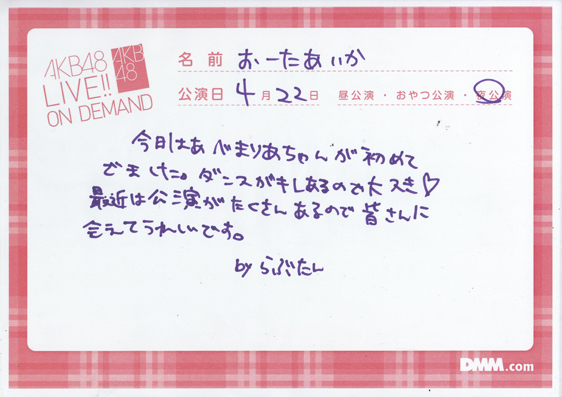 AKB48
LIVE!!
ON DEMAND
AKB
48
名前 おーたあいか
公演日 4月22日 昼公演・おやつ公演・夜公演
今日はあべまりあちゃんが初めて
でました。ダンスがキレあるので大スき♡
最近は公演がたくさんあるので皆さんに
会えてうれしいです。
by らぶたん
DMM.com